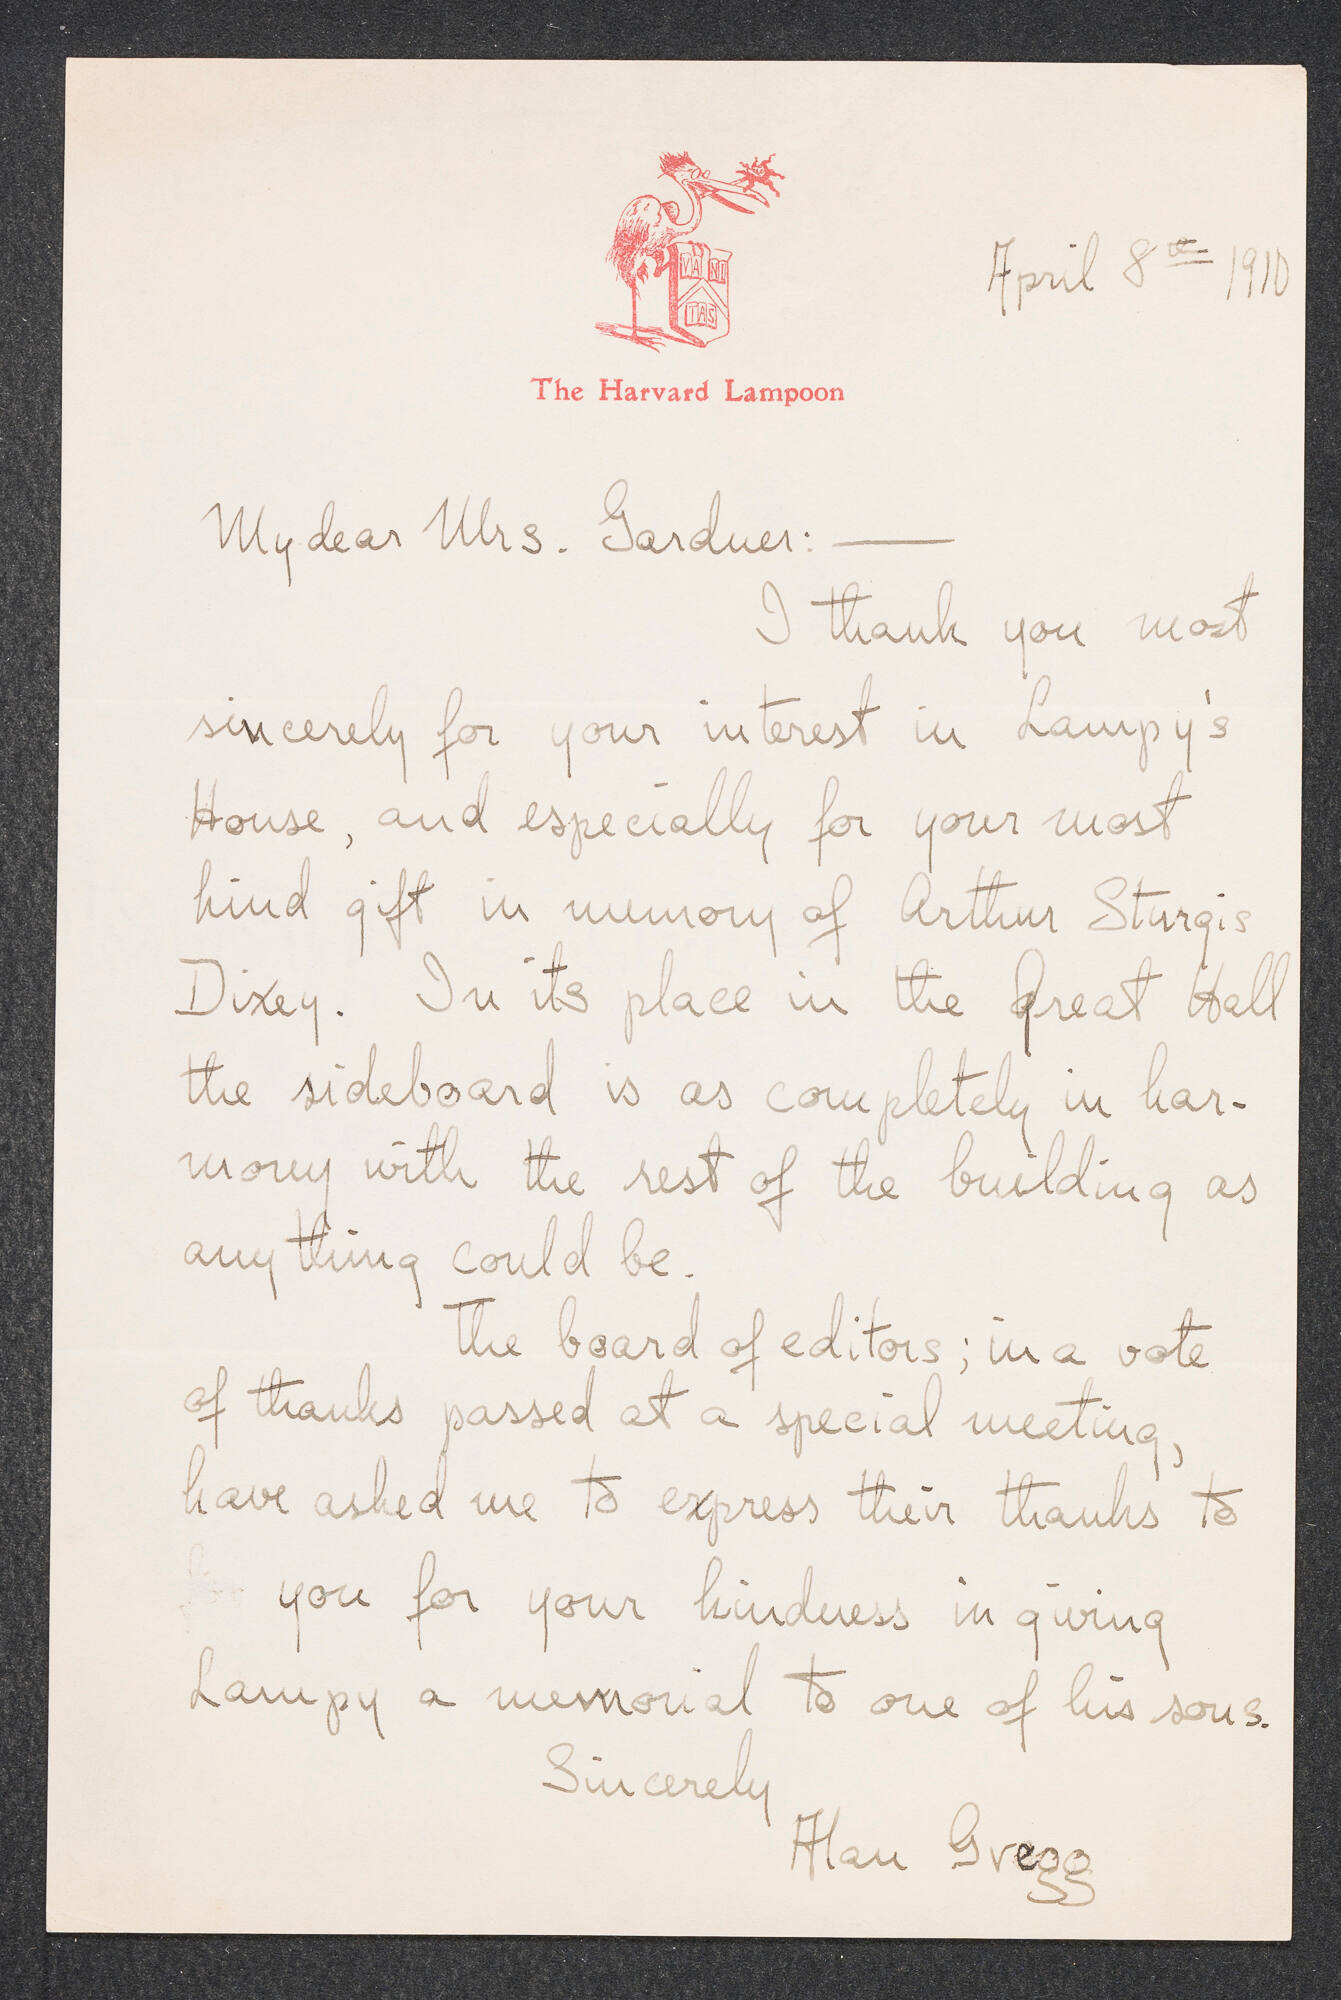 VA NI
TAS
April 8th 1910
The Harvard Lampoon
My dear Mrs. Gardner: —
I thank you most
sincerely for your interest in Lampy's
House, and especially for your most
kind gift in memory of Arthur Sturgis
Dixey. In its place in the Great Hall
the sideboard is as completely in har-
mony with the rest of the building as
anything could be.
The board of editors; in a vote
of thanks passed at a special meeting,
have asked me to express their thanks to
you for your kindness in giving
Lampy a memorial to one of his sons.
Sincerely
Alan Gregg